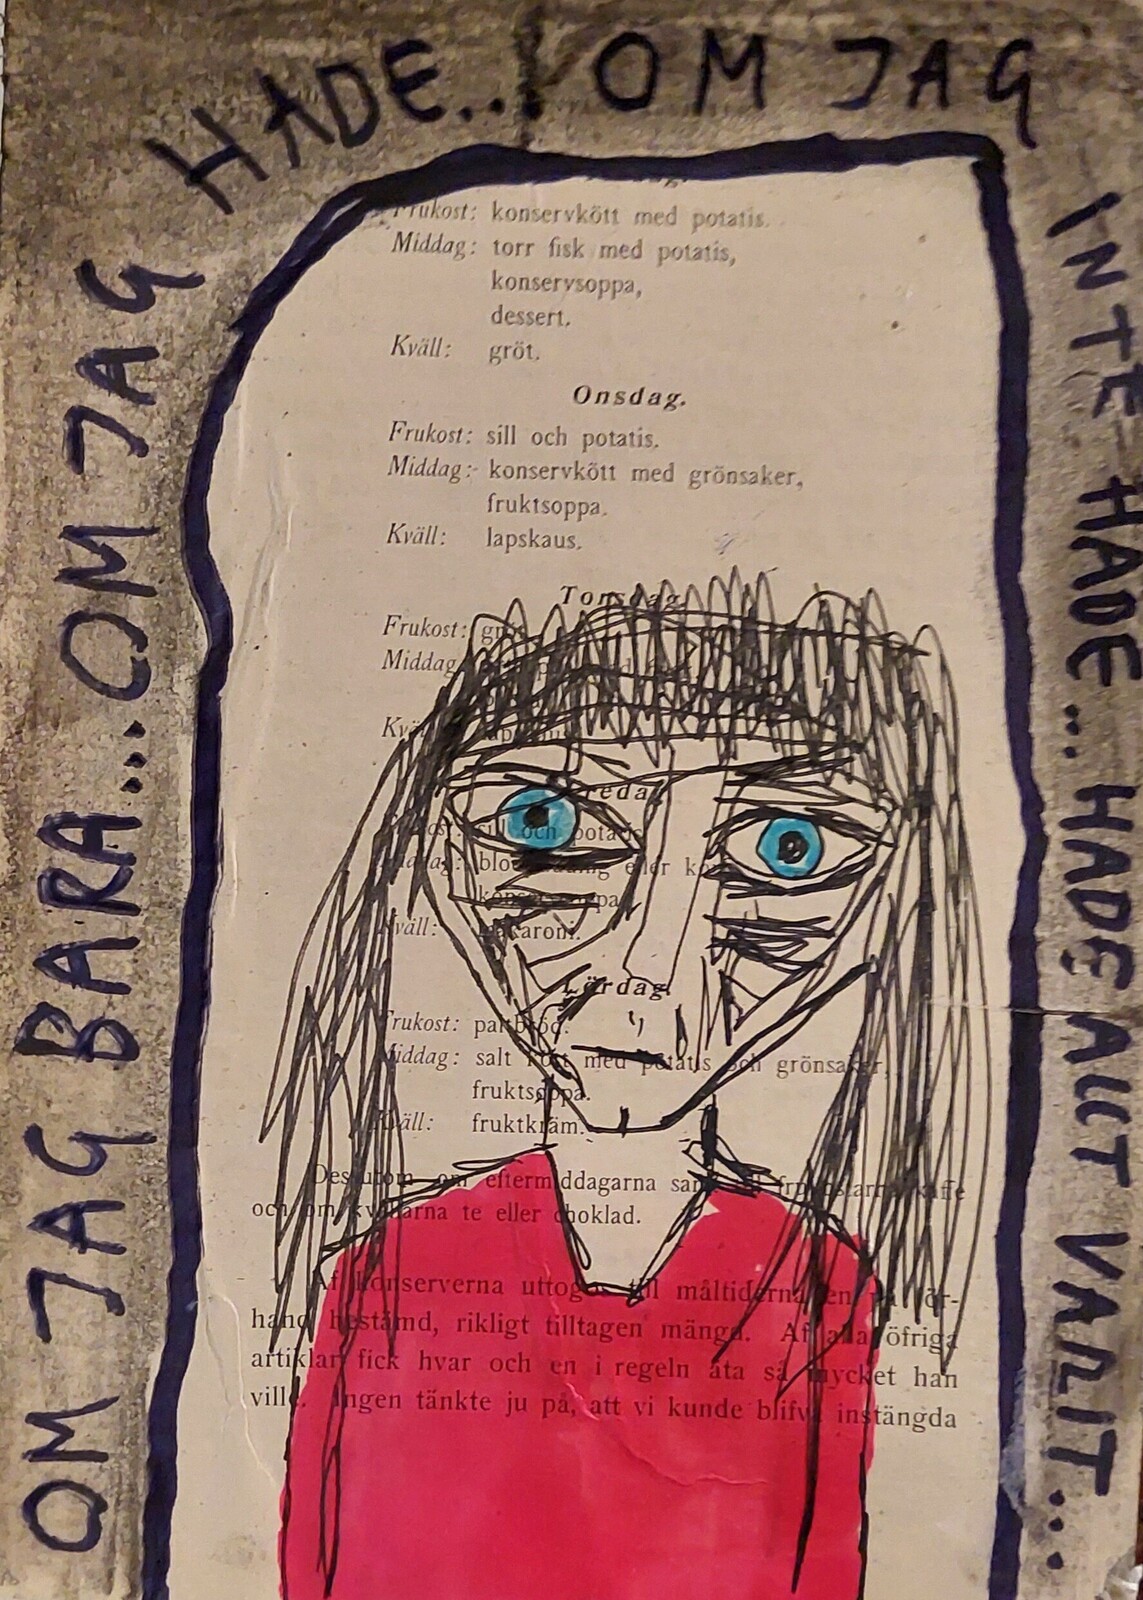 OM JAG BARA... OM JAG HADE... OM JAG INTE HADE... HADE ALLT VARIT...
Frukost: konservkött med potatis.
Middag: torr fisk med potatis,
konservsoppa,
dessert.
Kväll: gröt.
Onsdag.
Frukost: sill och potatis.
Middag: konservkött med grönsaker,
fruktsoppa.
Kväll: lapskaus.
Torsdag.
Frukost:
Middag
sill och potatis
eller
makaroni.
Lördag.
Frukost: paltbröd.
Middag: salt kött med potatis och grönsaker,
fruktsoppa.
Kväll: fruktkräm.
Dessutom om eftermiddagarna kaffe
och om kvällarna te eller choklad.
Af konserverna uttogos till måltiderna en på för-
hand bestämd, rikligt tilltagen mängd. Af alla öfriga
artiklar fick hvar och en i regeln äta så mycket han
ville. Ingen tänkte ju på, att vi kunde blifva instängda